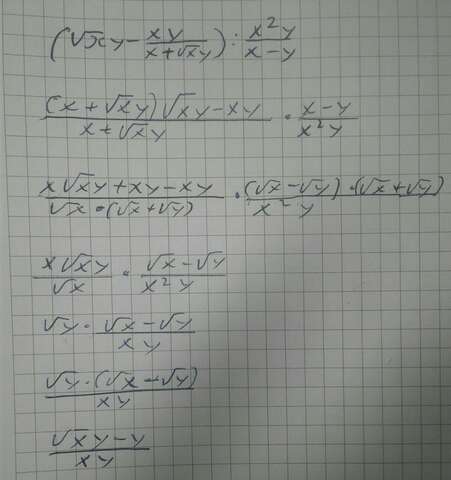 (√xy - xy/(x+√xy)) : x²y/(x-y)
((x + √xy)√xy - xy)/(x + √xy) · (x-y)/(x²y)
(x√xy + xy - xy)/(√x · (√x + √y)) · ((√x - √y) · (√x + √y))/(x²y)
(x√xy)/√x · (√x - √y)/(x²y)
√y · (√x - √y)/(xy)
(√y · (√x - √y))/(xy)
(√xy - y)/(xy)